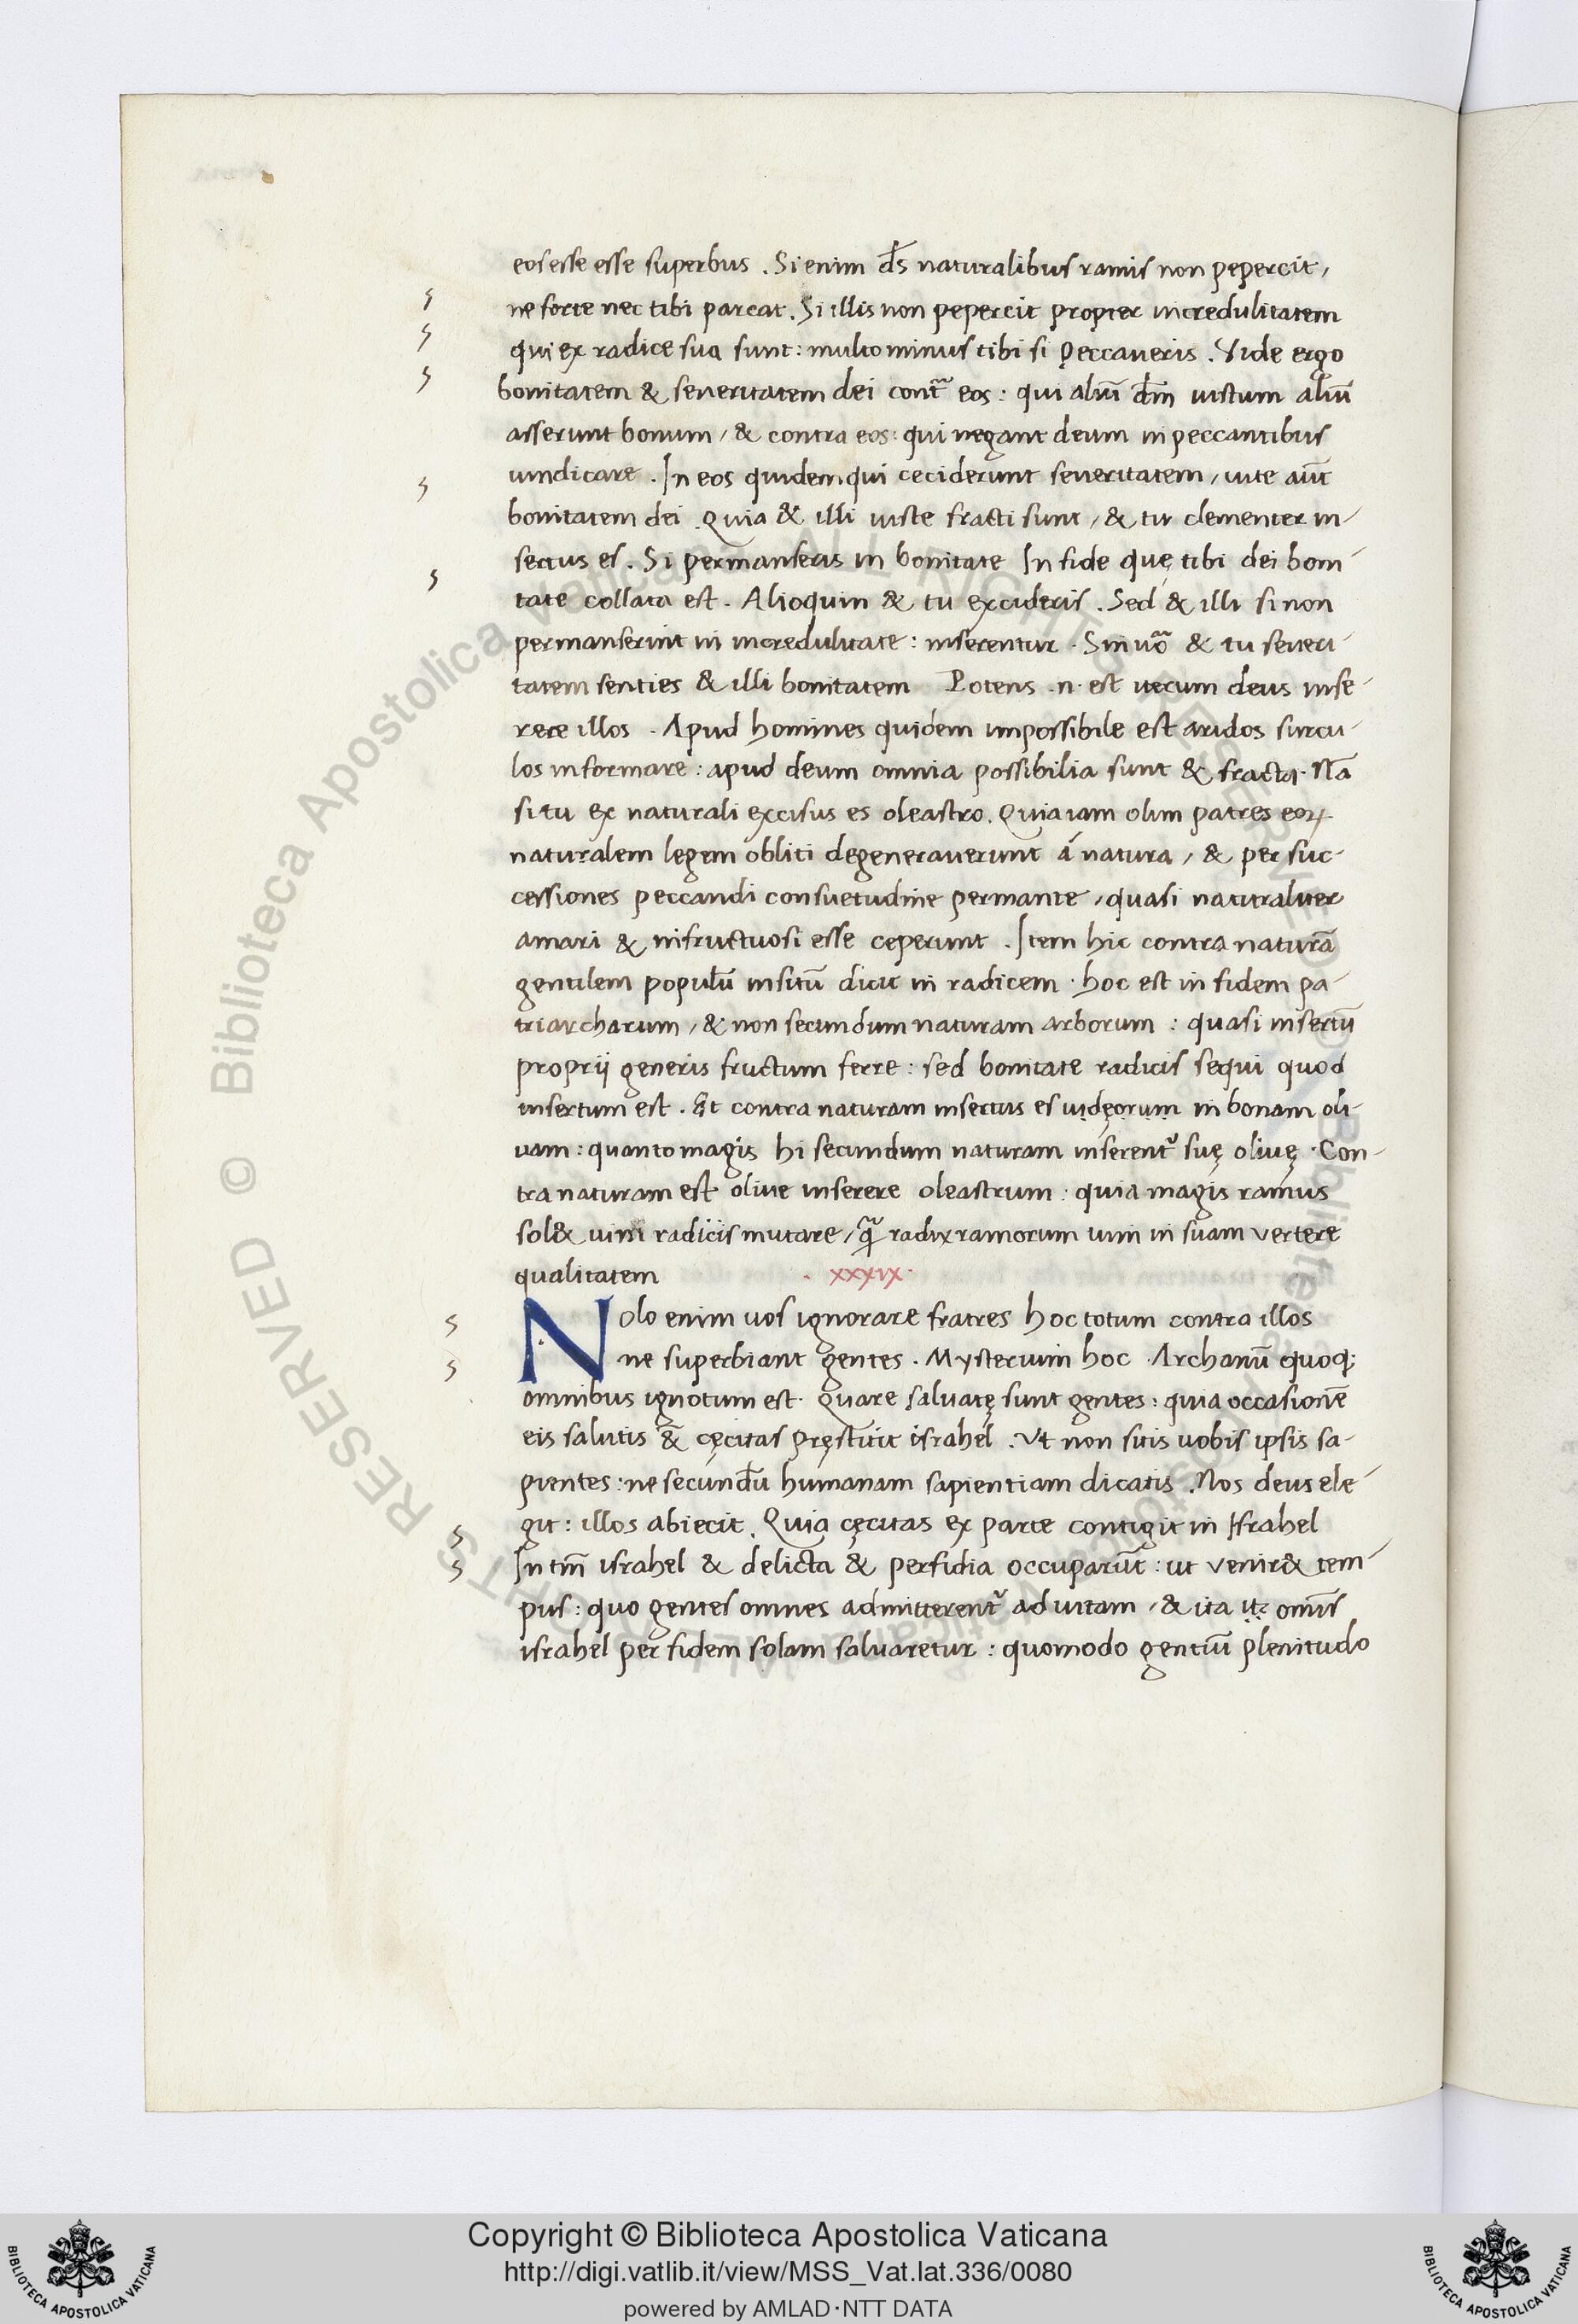 eos esse esse superbus . Si enim d̄s naturalibus ramis non pepercit ,
ne forte nec tibi parcat . Si illis non pepercit propter incredulitatem
qui ex radice sua sunt : multo minus tibi si peccaueris . Vide ergo
bonitatem & seueritatem dei cont̄ eos : qui aliū dm̄ iustum aliū
asserunt bonum , & contra eos : qui negant deum in peccantibus
uindicare . In eos quidem qui ceciderunt seueritatem , inte aūt
bonitatem dei . Quia & illi iuste fracti sunt , & tu clementer in-
sertus es . Si permanseris in bonitate In fide quę tibi dei boni-
tate collata est . Alioquin & tu excideris . Sed & illi si non
permanserint in incredulitate : inserentur . Sin uō & tu seueri-
tatem senties & illi bonitatem Potens .n. est iterum deus inse-
rere illos . Apud homines quidem impossibile est aridos surcu-
los informare : apud deum omnia possibilia sunt & fracta . Nā
si tu ex naturali excisus es oleastro . Quia iam olim patres eoꝝ
naturalem legem obliti degenerauerunt á natura , & per suc-
cessiones peccandi consuetudine permante , quasi naturaliter
amari & infructuosi esse ceperunt . Item hic contra naturā
gentilem populū insitū dicit in radicem . hoc est in fidem pa-
triarcharum , & non secundum naturam arborum : quasi insertū
proprij generis fructum ferre : sed bonitate radicis sequi quod
insertum est . Et contra naturam insertus es iudęorum in bonam oli-
uam : quanto magis hi secundum naturam inserent᷑ suę oliuę . Con-
tra naturam est oliue inserere oleastrum : quia magis ramus
sol& uim radicis mutare , qᷓ radix ramorum uim in suam vertere
qualitatem . xxxix .
Nolo enim uos ignorare fratres hoc totum contra illos
ne superbiant gentes . Mysterium hoc . Archanū quoq;
omnibus ignotum est . quare saluatę sunt gentes : quia occasionē
eis salutis & cęcitas pręstitit israhel . Vt non sitis uobis ipsis sa-
pientes : ne secundū humanam sapientiam dicatis . Nos deus ele-
git : illos abiecit . Quia cęcitas ex parte contigit in Israhel
In tm̄ israhel & delicta & perfidia occuparūt : ut venir& tem-
pus : quo gentes omnes admitterent᷑ ad uitam , & ita it omīs
israhel per fidem solam saluaretur : quomodo gentiū plenitudo
Copyright © Biblioteca Apostolica Vaticana
http://digi.vatlib.it/view/MSS_Vat.lat.336/0080
powered by AMLAD·NTT DATA